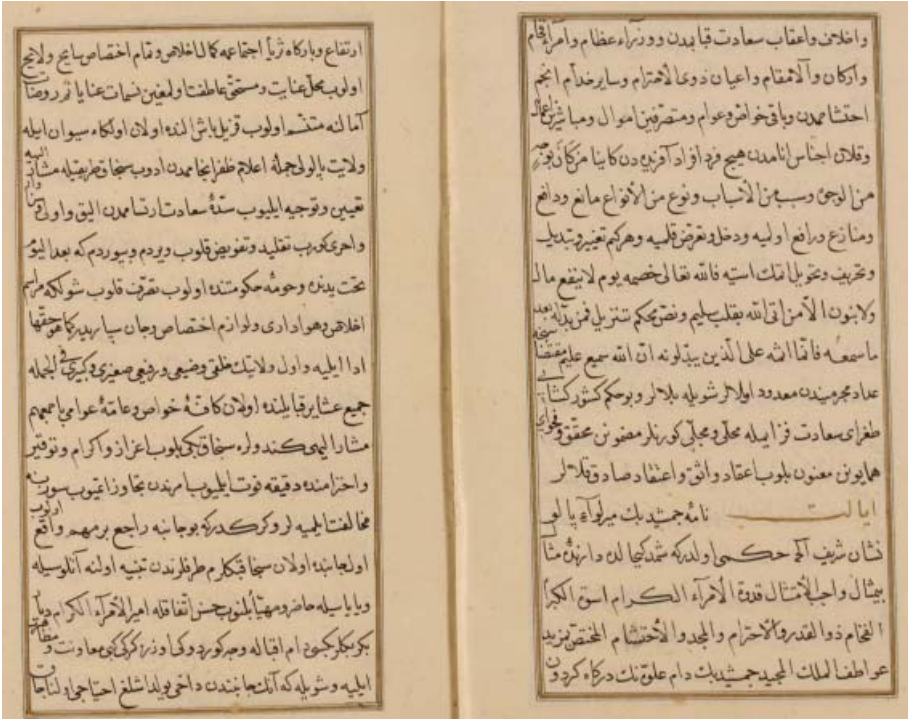 واخلاف واعقاب سعادت قبابمدن ووزراء عظام وامراء فخام
واركان والامقام واعيان ذوى الاحترام وسائر خدام انجم
احتشاممدن وباقى خواص وعوام ومتصرفين اموال ومباشرين اعمال
وقلان اجناس انامدن هيچ فرد افراد آفريده دن كاينا من كان بوجه
من الوجوه وسبب من الاسباب ونوع من الانواع مانع ودافع
ومنازع ورافع اوليه ودخل وتعرض قلميه وهركيم تغيير وتبديل
وتحريف وتحويل ايتمك استيه فالله تعالى خصمه يوم لا ينفع مال
ولا بنون الا من اتى الله بقلب سليم ونص محكم تنزيل فمن بدله بعد
ما سمعه فانما اثمه على الذين يبدلونه ان الله سميع عليم مقتضاسنجه
عداد مجرميندن معدود اولالر شويله بلالر وبو حكم كشور كشايى
طغراى سعادت فزا ايله محلى ومجلى كوريلر مضمونن محقق وفحواى
همايونن معنون بلوب اعتقاد واثق واعتقاد صادق قلالر
ايالت نامۀ جمشيد بك ميرلواء پالو
نشان شريف حكمى اولدركه شمديكى حالده دارندۀ مثال
بيمثال واجب الامتثال قدوة الامراء الكرام اسوة الكبراء
الفخام ذو القدر والاحترام والمجد والاحتشام المختص بمزيد
عواطف الملك المجيد جمشيد بك دام علوه نك دركاه كردون
ارتفاع وباركاه ثريا اجتماعمه كمال اخلاص وتمام اختصاص سايح ولايح
اولوب محل عنايت ومستحق عاطفت اولمغين نسمات عناياتم روضات
آمالنه متنسم اولوب قزيل باش النده اولان اولكاء سيوان ايله
ولايت پالويى جملۀ اعلام ظفر انجاممدن ادوب سنجاق طريقيله مشار اليه
تعيين وتوجيه ايليوب سدۀ سعادت ارتساممدن اليق واولى وانسب
واحرى كورب تقليد وتفويض قلوب ويردم وبيوردم كه بعد اليوم
تحت يدنده وحومۀ حكومتنده اولوب تصرف قلوب شول كه مراسم
اخلاص وهوادارى ولوازم اختصاص وجان سپاريدر كما هو حقها
ادا ايليه واول ولايتك مطلقى وضيعى ورفيعى صغيرى وكبيرى فى الجمله
جميع عشاير قبايلنده اولان كافۀ خواص وعامۀ عوامى باجمعهم
مشار اليهى كندولره سنجاق بكى بلوب اعزاز واكرام وتوقير
واحترامنده دقيقه فوت ايليوب امرندن تجاوز اتميوب سوزينه
مخالفت ايلميه لر وكركدركه بو جانبه راجع بر مهم واقع اولوب
اول جانبده اولان سنجاق بكلرم طرفلرندن تنبيه اولنه آنلر وسيله
ويا باسيله حاضر ومهيا بلنوب حسن اتفاقله امير الامراء الكرام ديار
بكر بكلربكيسى دام اقباله وجه كوردوكى اوزره كركى كبى معاونت ومظاهرت
ايليه وشويله كه آنك جانبندن داخى يولداشلغه احتياجى اولنا جانبدن